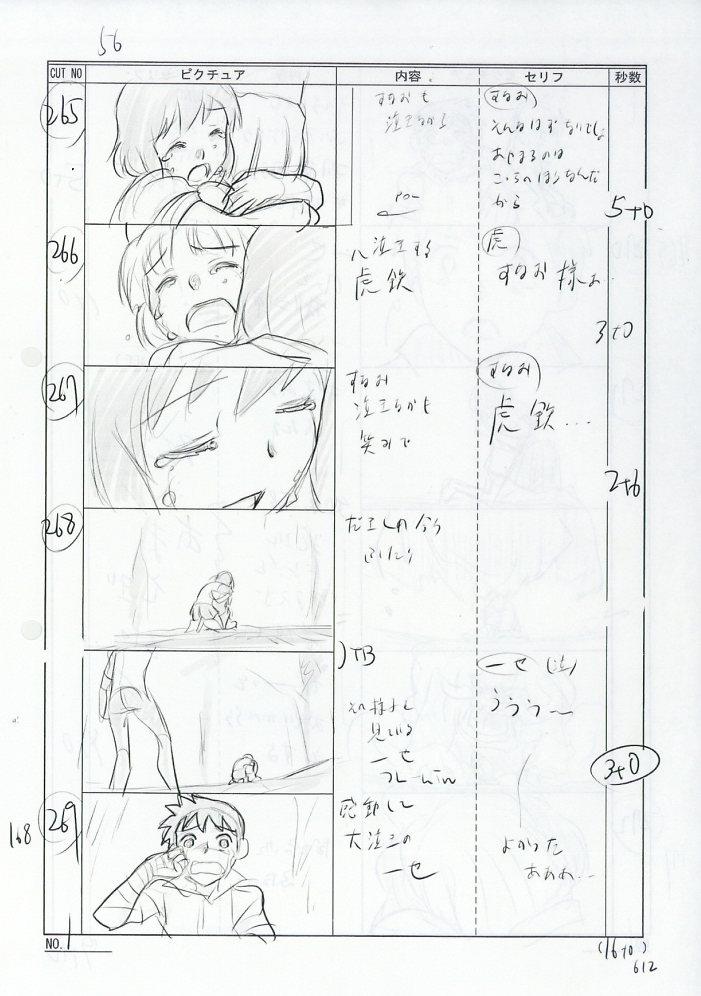 56
CUT NO ピクチュア 内容 セリフ 秒数
265
すなおも
泣きながら
すなお
そんなはずないでしょ
こっちのほうなんだ
から
5+0
266
大泣きする
虎鉄
虎
すなお様ぁ...
3+0
267
すなお
泣きながら
笑みで
すなお
虎鉄...
2+6
268
だきしめ合う
ふたり
TB
その様子を
見ている
一世
フレームin
一世 (泣)
ううう～
3+0
168
269
感動して
大泣きの
一世
よかった
あああ...
NO. 1
(16+0)
612